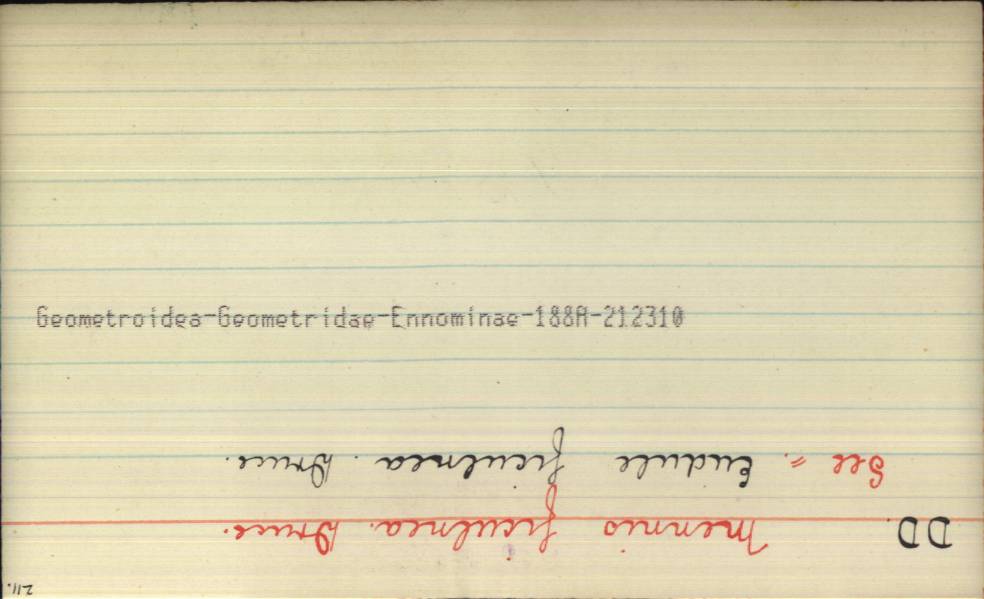 Geometroidea-Geometridae-Ennominae-188A-212310
DD. Mennis ficulnea. Druce.
See =. Eudule ficulnea. Druce.
211.